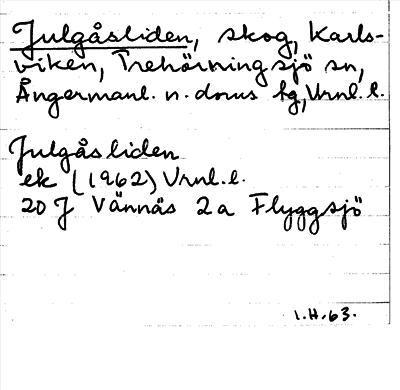 Julgåsliden, skog, Karls-
viken, Trehörningsjö sn,
Ångermanl. n. doms fg, Vrnl. l.
Julgåsliden
ek (1962) Vrnl. l.
20 J Vännäs 2a Flyggsjö
I.H.63.